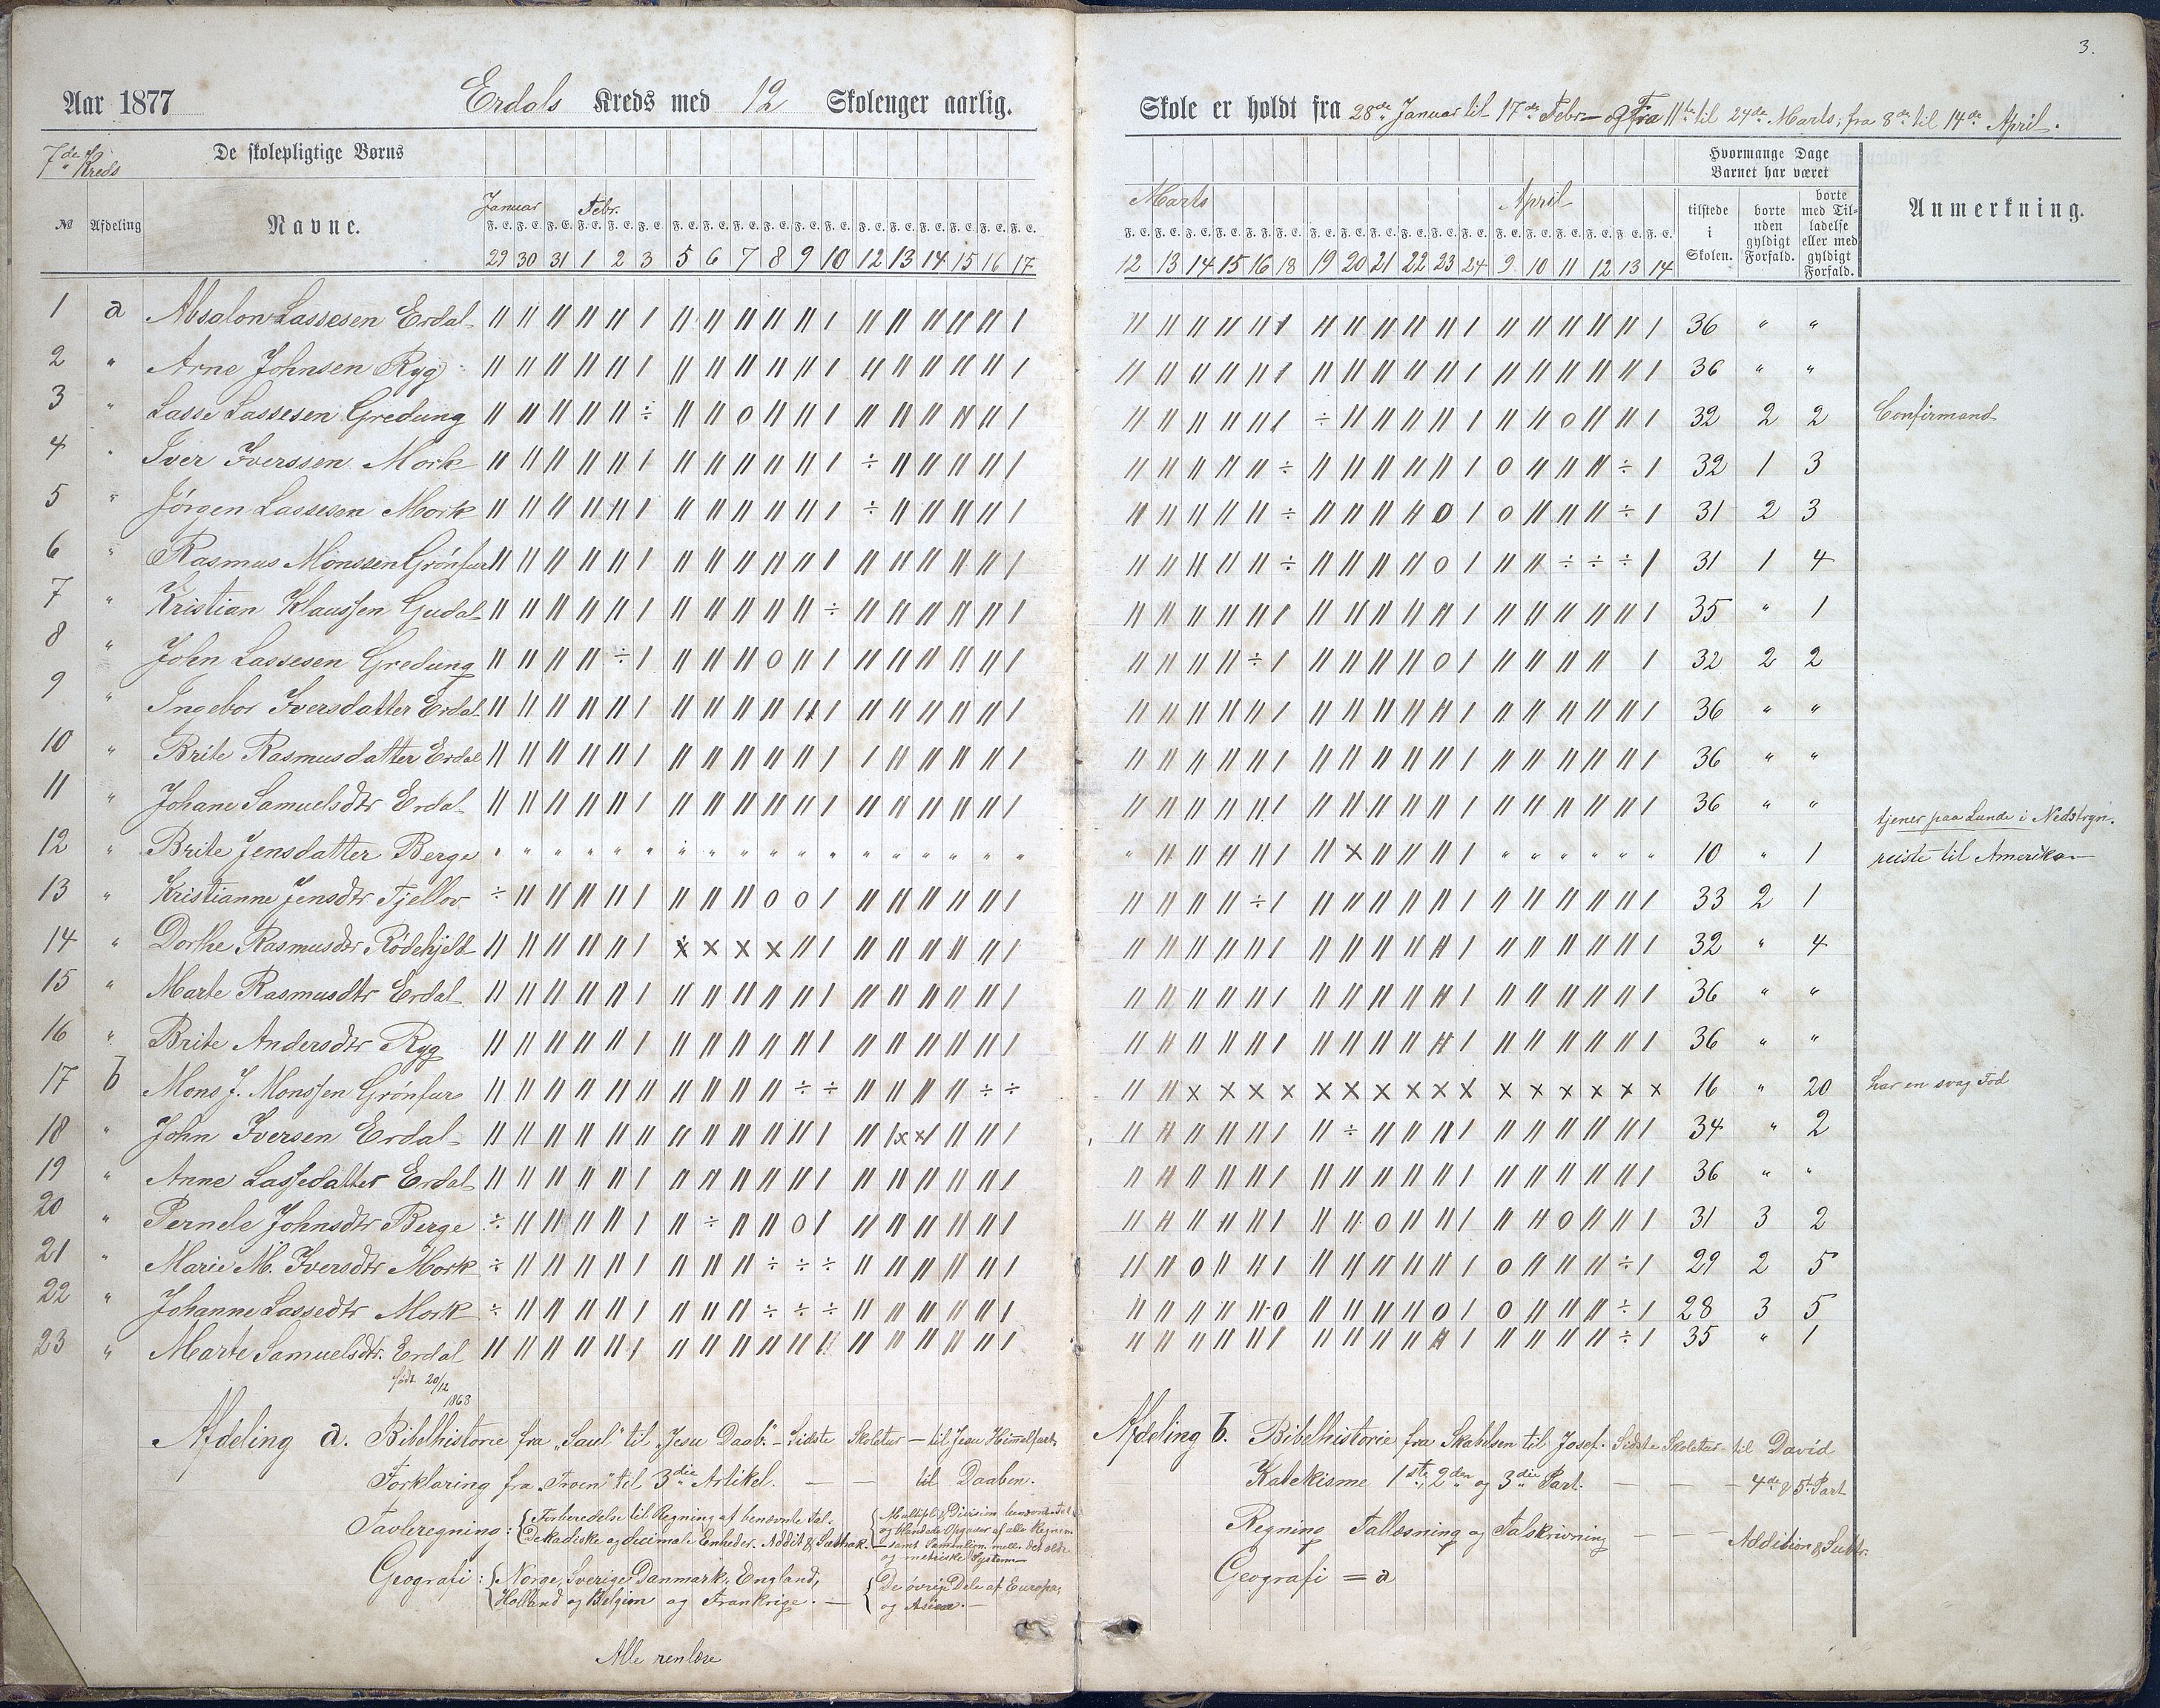 3.
Aar 1877 Erdals Kreds med 12 Skolenger aarlig.
Skole er holdt fra 28de Januar til 17de Febr – og fra 11te til 24de Marts; fra 8de til 14de April.
7de Kreds
De skolepligtige Børns
№ Afdeling Navne.
Januar Febr.
F. E. F. E. F. E. F. E. F. E. F. E. F. E. F. E. F. E. F. E. F. E. F. E. F. E. F. E. F. E. F. E. F. E. F. E.
29 30 31 1 2 3 5 6 7 8 9 10 12 13 14 15 16 17
Marts April
F. E. F. E. F. E. F. E. F. E. F. E. F. E. F. E. F. E. F. E. F. E. F. E. F. E. F. E. F. E. F. E. F. E. F. E.
12 13 14 15 16 18 19 20 21 22 23 24 9 10 11 12 13 14
Hvormange Dage
Barnet har været
tilstede
i
Skolen.
borte
uden
gyldigt
Forfald.
borte
med Til-
ladelse
eller med
gyldigt
Forfald.
Anmerkning.
1 a Absalon Lassesen Erdal 36 " "
2 " Arne Johnsen Ryg 36 " "
3 " Lasse Lassesen Gredung 32 2 2 Confirmand
4 " Iver Iverssen Mork 32 1 3
5 " Jørgen Lassesen Mork 31 2 3
6 " Rasmus Monssen Grønfur 31 1 4
7 " Kristian Klaussen Gudal 35 " 1
8 " John Lassesen Gredung 32 2 2
9 " Ingebor Iversdatter Erdal 36 " "
10 " Brite Rasmusdatter Erdal 36 " "
11 " Johane Samuelsdtr Erdal 36 " "
tjener paa Lunde i Nedstryn.
12 " Brite Jensdatter Berge 10 " 1 reiste til Amerika
13 " Kristianne Jensdtr Fjellov 33 2 1
14 " Dorthe Rasmusdtr Rødehjeld 32 " 4
15 " Marte Rasmusdtr Erdal 36 " "
16 " Brite Andersdtr Ryg 36 " "
17 b Mons J. Monssen Grønfur 16 " 20 har en svag Fod
18 " John Iversen Erdal 34 " 2
19 " Anne Lassedatter Erdal 36 " "
20 " Pernele Johnsdtr Berge 31 3 2
21 " Marie M. Iversdtr Mork 29 2 5
22 " Johanne Lassedtr Mork 28 3 5
23 " Marte Samuelsdtr. Erdal 35 " 1
født 20/12
1868
Afdeling a. Bibelhistorie fra "Saul" til "Jesu Daab" – Sidste Skoletur – til Jesu Himmelfart
Forklaring fra "Troen" til 3die Artikel. — — til Daaben.
Tavleregning: Forberedelse til Regning af benævnte Tal.
Dekadiske og decimale Enheder. Addit & Subtrak. –
Multipl. & Division benævnte Tal
og blandede Opgaver af alle Regnem
samt Samenlign. mell. det old
og metriske System –
Geografi: Norge, Sverige, Danmark, England,
Holland og Belgien og Frankrige. –
De øvrige Dele af Europa,
og Asien. –
Alle renlæse
Afdeling b. Bibelhistorie fra Skabelsen til Josef. Sidste Skoletur – til David
Katekisme 1ste, 2den og 3die Part. — — — 4de & 5t Part
Regning Tallæsning og Talskrivning — — — Addition & Subtr.
Geografi = a